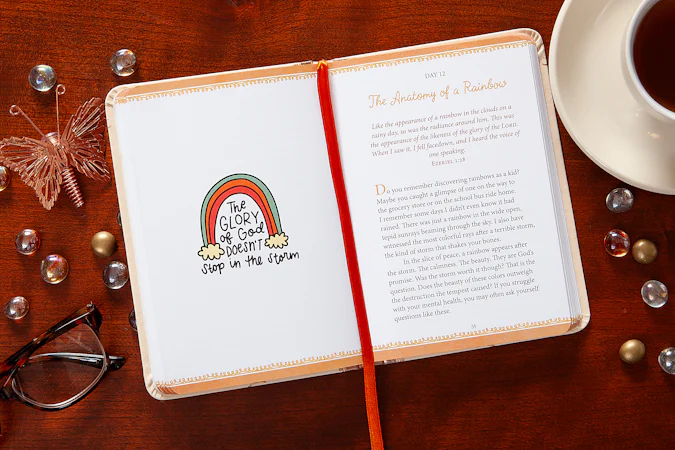 The
GLORY
of God
DOESN'T
Stop in the Storm
DAY 12
The Anatomy of a Rainbow
Like the appearance of a rainbow in the clouds on a
rainy day, so was the radiance around him. This was
the appearance of the likeness of the glory of the LORD.
When I saw it, I fell facedown, and I heard the voice of
one speaking.
EZEKIEL 1:28
Do you remember discovering rainbows as a kid?
Maybe you caught a glimpse of one on the way to
the grocery store or on the school bus ride home.
I remember some days I didn't even know it had
rained. There was just a rainbow in the wide open,
tepid sunrays beaming through the sky. I also have
witnessed the most colorful rays after a terrible storm,
the kind of storm that shakes your bones.
In the slice of peace, a rainbow appears after
the storm. The calmness. The beauty. They are God's
promise. Was the storm worth it though? That is the
question. Does the beauty of these colors outweigh
the destruction the tempest caused? If you struggle
with your mental health, you may often ask yourself
questions like these.